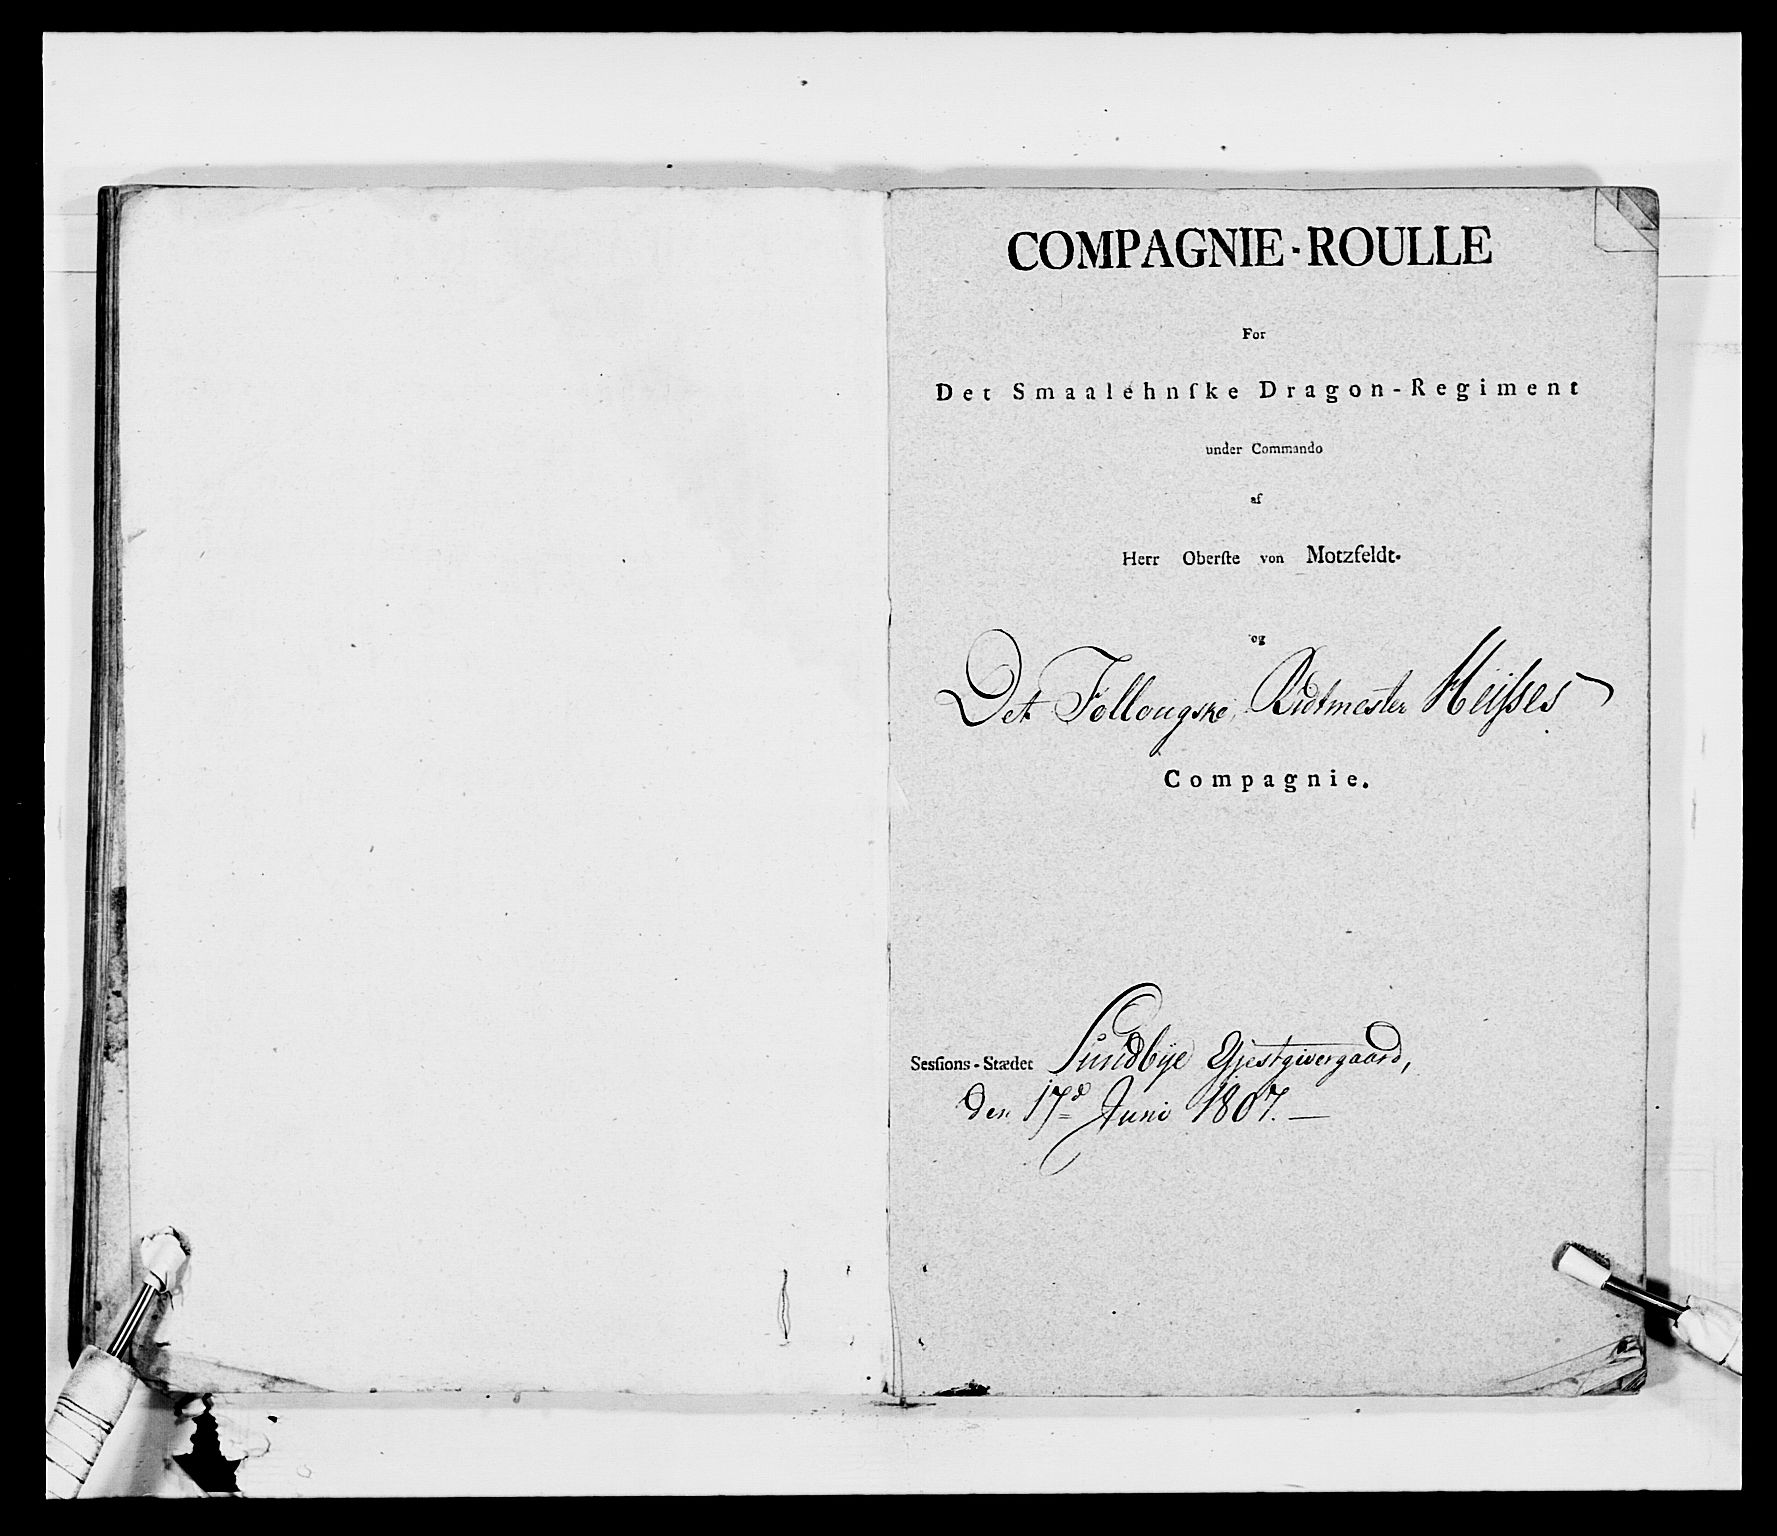 COMPAGNIE-ROULLE
For
Det Smaalehnſke Dragon-Regiment
under Commando
af
Herr Oberſte von Motzfeldt.
og
Det Follougske, Ridtmester Heiſses
Compagnie.
Sesſions-Stædet Sundbÿe Gjestgivergaard,
den 17d Juni 1807. —